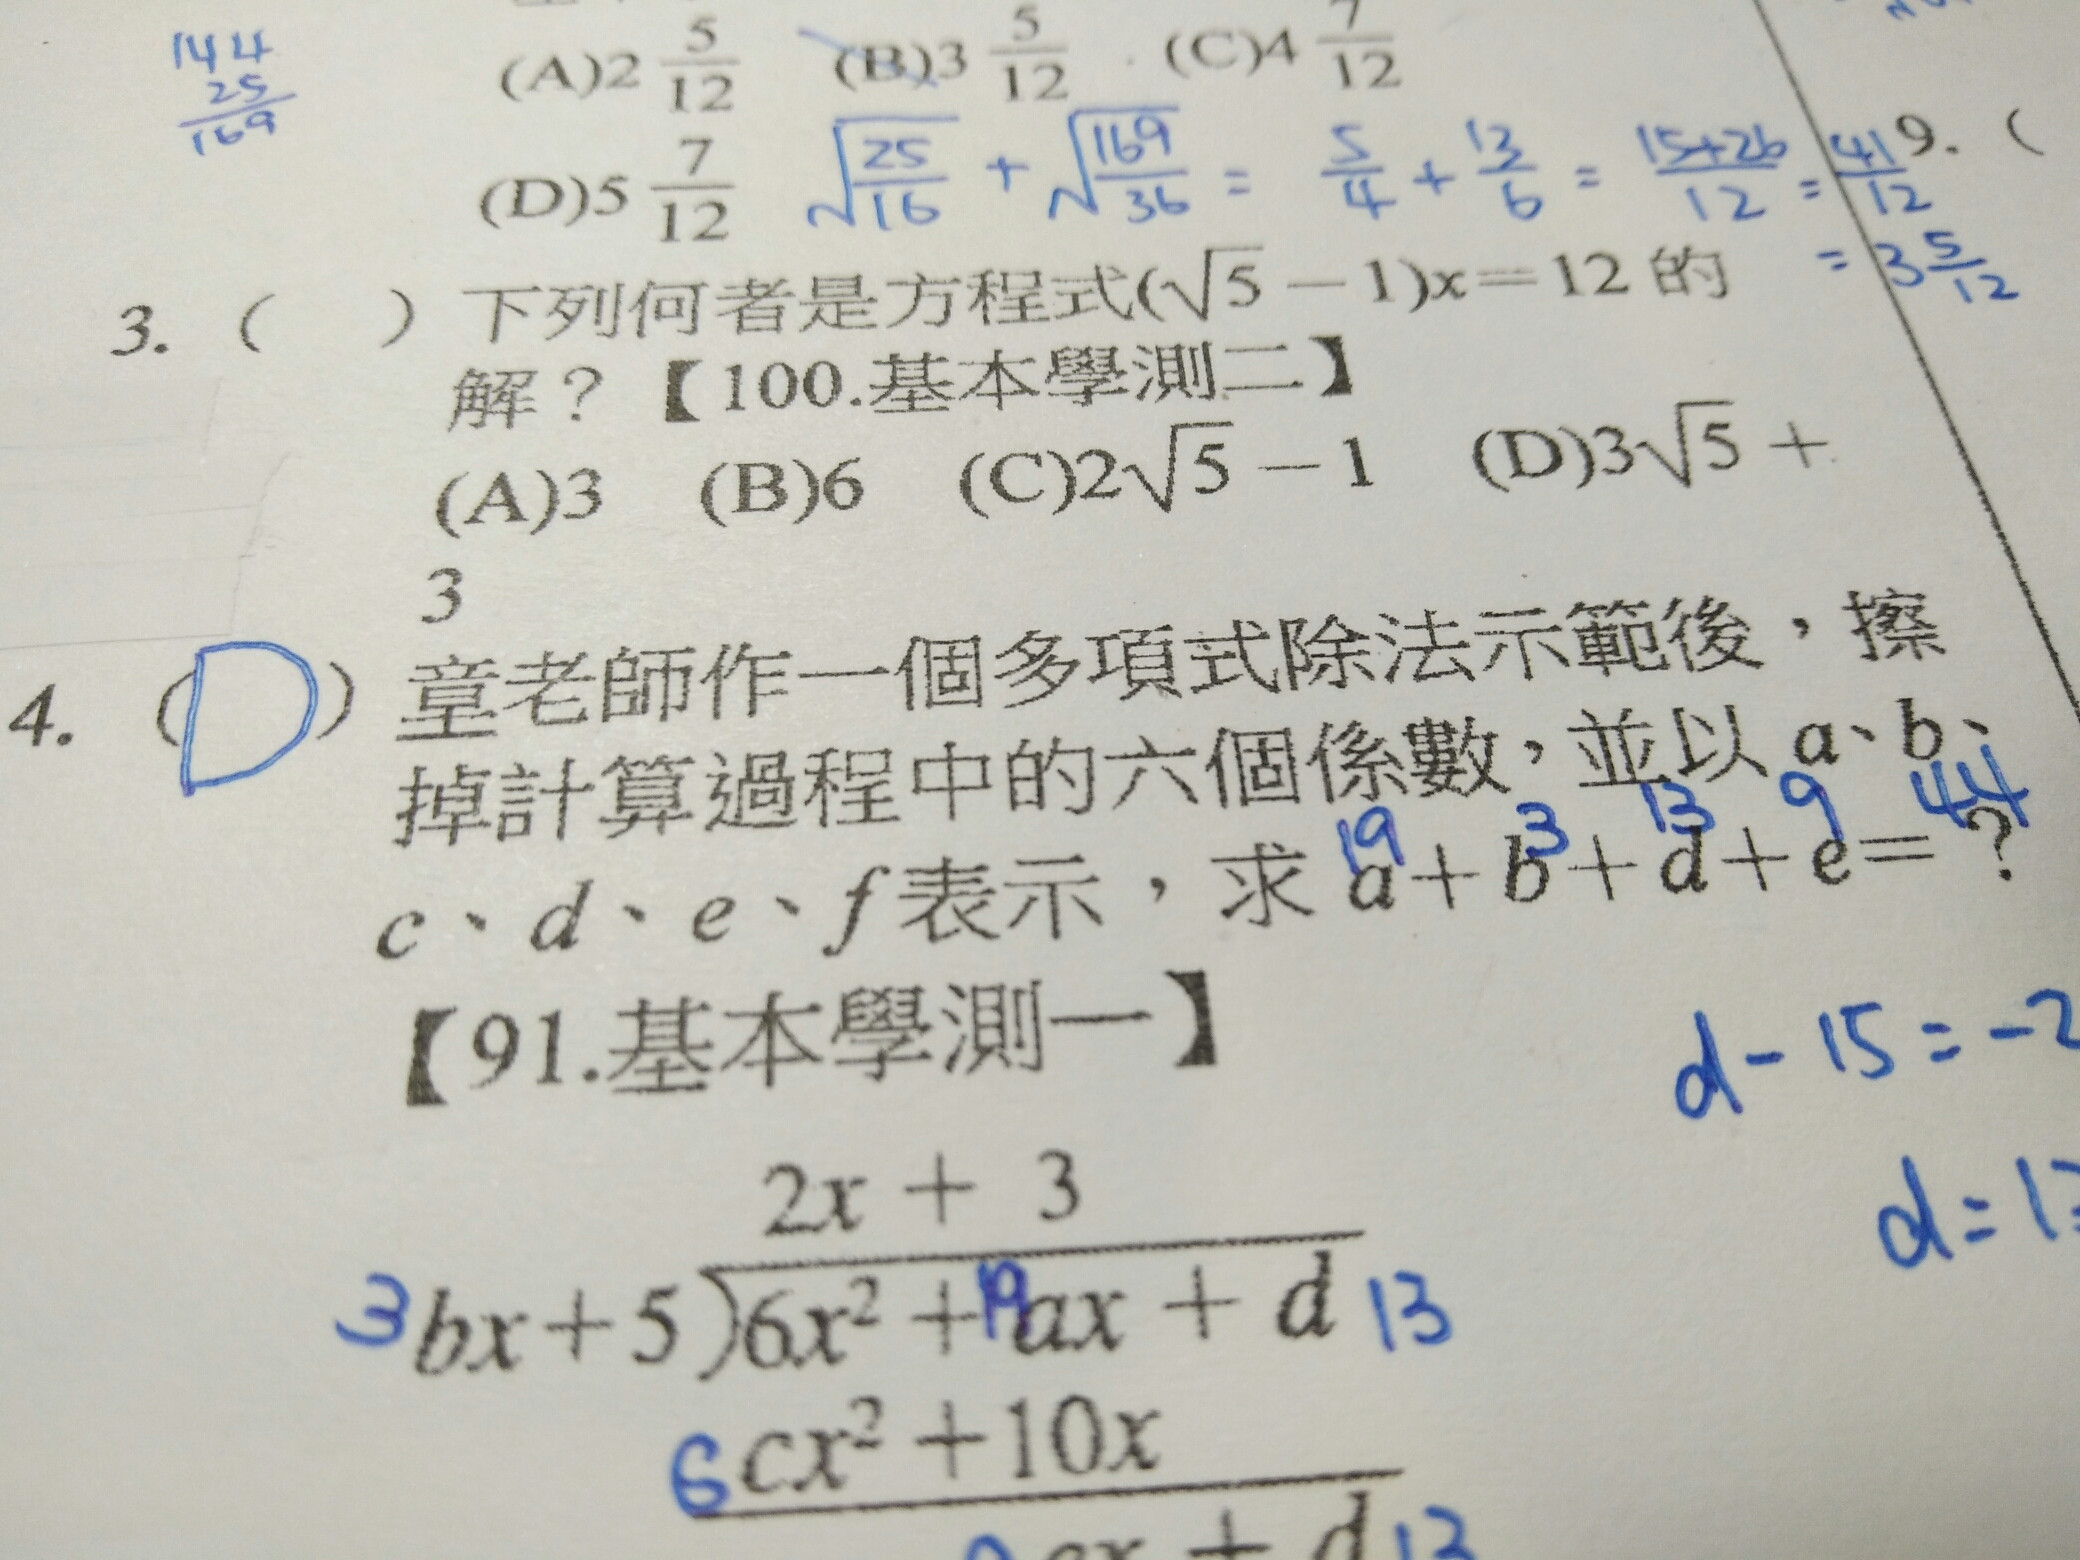 144
25
169
(A)2 5/12 (B)3 5/12 (C)4 7/12
(D)5 7/12 √(25/16) + √(169/36) = 5/4 + 13/6 = (15+26)/12 = 41/12
= 3 5/12
9. (
3. ( ) 下列何者是方程式(√5－1)x＝12 的
解？【100.基本學測二】
(A)3 (B)6 (C)2√5－1 (D)3√5＋
3
4. (D) 童老師作一個多項式除法示範後，擦
掉計算過程中的六個係數，並以 a、b、
19 3 13 9 44
c、d、e、f 表示，求 a＋b＋d＋e＝？
【91.基本學測一】
d - 15 = -2
d = 1
2x＋ 3
3 bx＋5)6x²＋19ax＋d 13
6 cx²＋10x
ex＋d 13